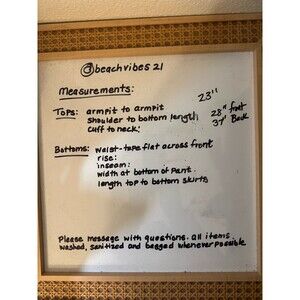 @beachvibes21
Measurements:
Tops: armpit to armpit 23"
shoulder to bottom length: 28" front
cuff to neck: 37" Back
Bottoms: waist-tape flat across front
rise:
inseam:
width at bottom of pant.
length top to bottom skirts
Please message with questions. all items
washed, sanitized and bagged whenever possible